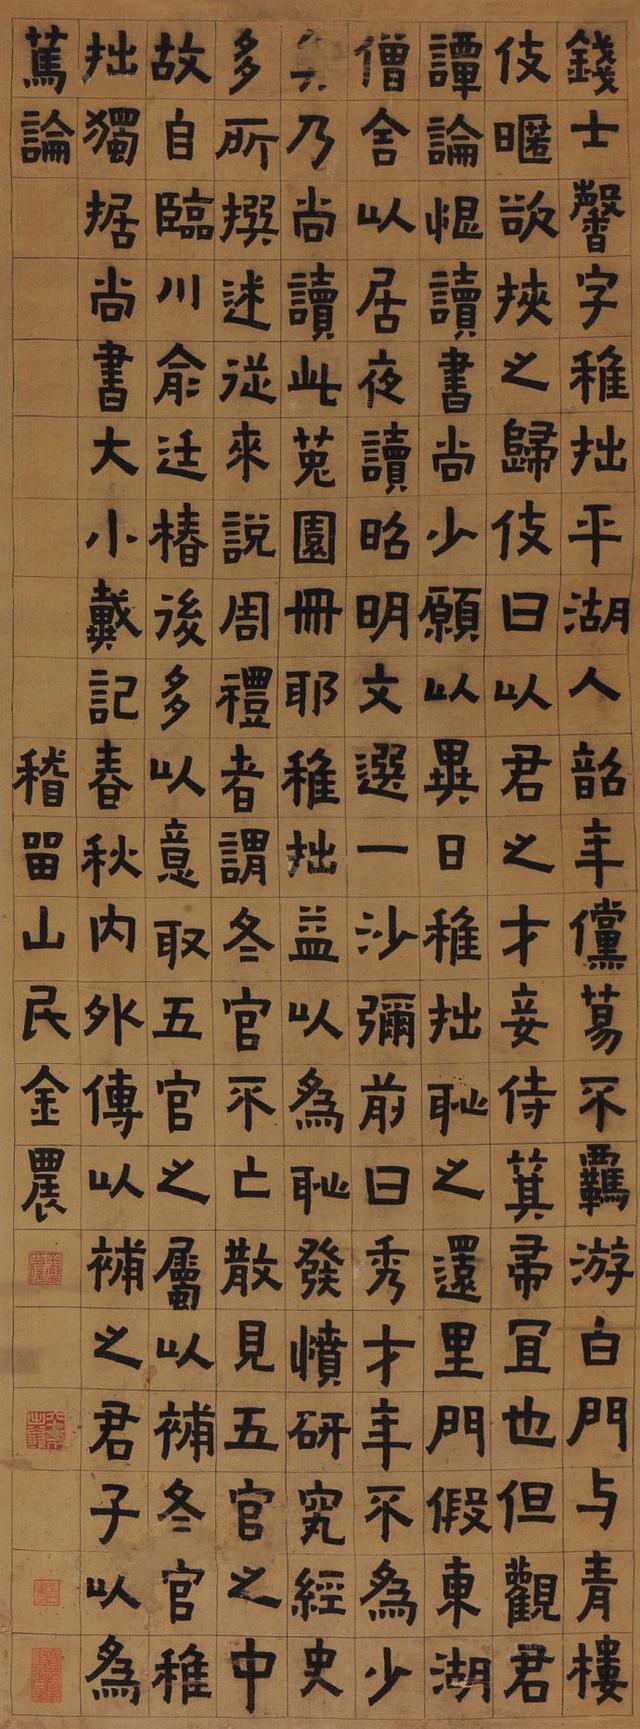 錢士馨字稚拙平湖人韶年儻昜不羈游白門与青樓
伎暱欲挾之歸伎曰以君之才妾侍箕帚宜也但觀君
譚論恨讀書尚少願以異日稚拙恥之還里門假東湖
僧舍以居夜讀昭明文選一沙彌前曰秀才年不為少
矣乃尚讀此菟園冊耶稚拙益以為恥發憤研究經史
多所撰述從來說周禮者謂冬官不亡散見五官之中
故自臨川俞廷椿後多以意取五官之屬以補冬官稚
拙獨据尚書大小戴記春秋内外傳以補之君子以為
篤論
稽留山民金農